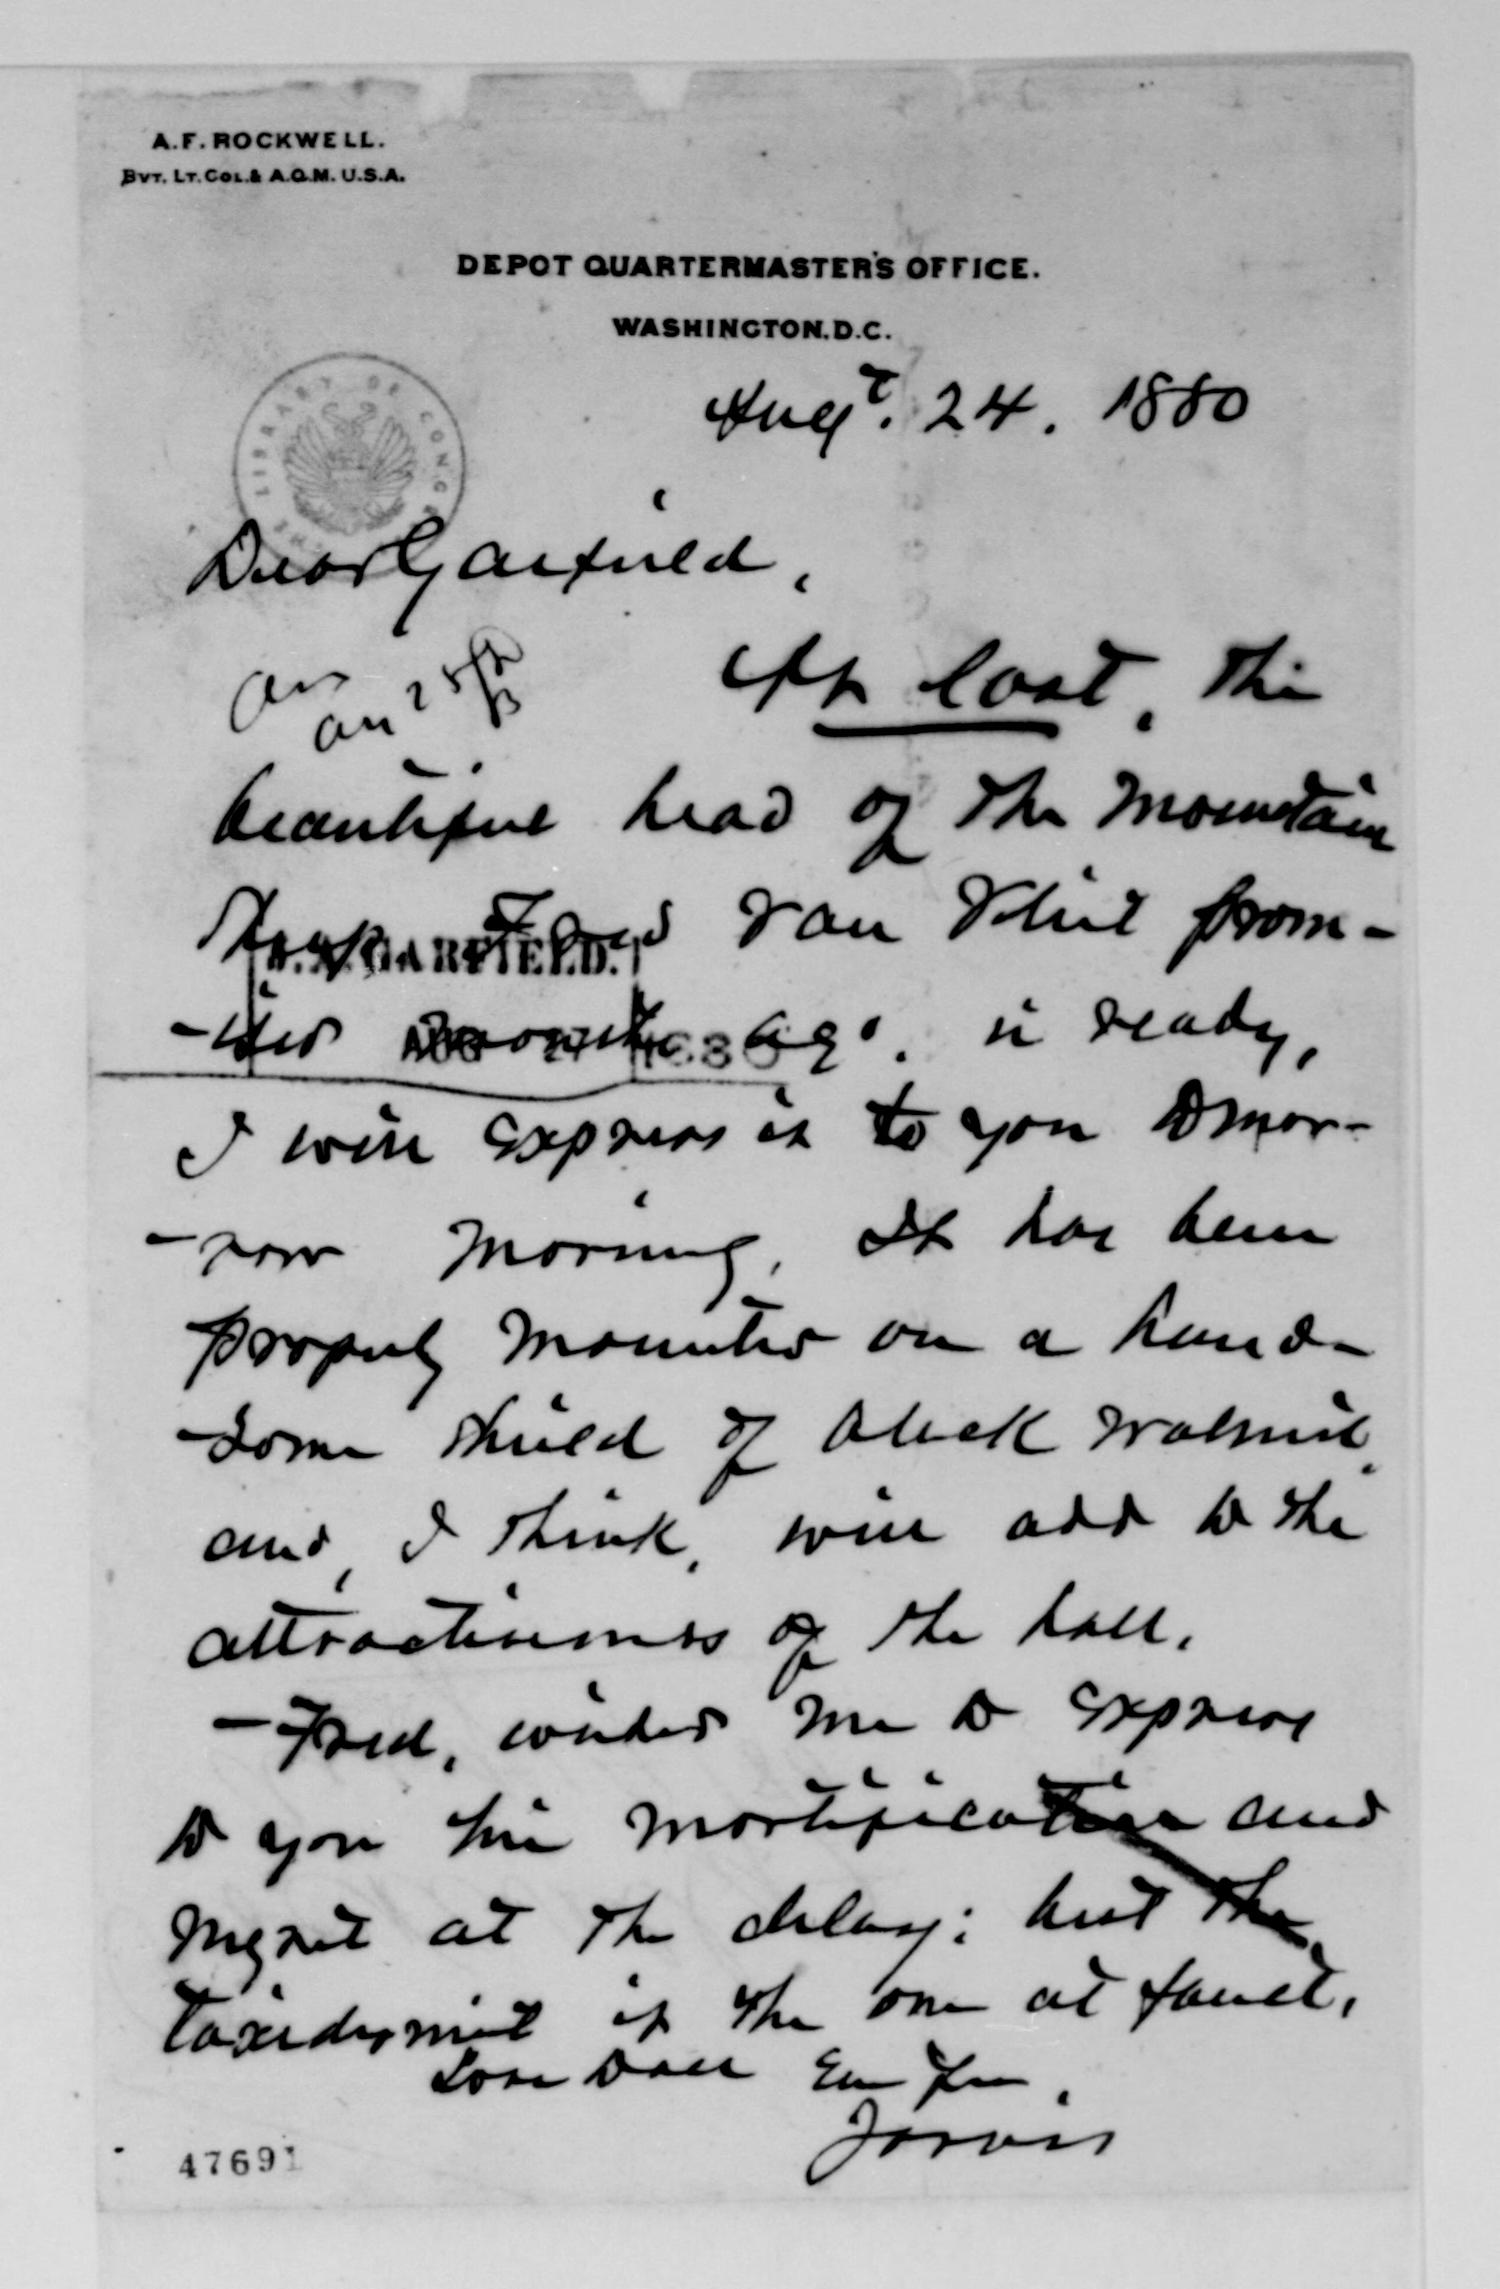 A. F. ROCKWELL.
BVT. LT. COL. & A.Q.M. U.S.A.
DEPOT QUARTERMASTER'S OFFICE.
WASHINGTON, D.C.
Augt. 24. 1880
THE LIBRARY OF CONGRESS
Dear Garfield,
Ans
Au 28th
At last, the
beautiful head of the Mountain
Sheep Fred Van Vliet prom-
-ised months ago, is ready,
I will express it to you tomor-
-row morning. It has been
properly mounted on a hand-
-some shield of black walnut,
and, I think, will add to the
attractiveness of the hall.
- Fred, wishes me to express
to you his mortification and
regret at the delay; but the
taxidermist is the one at fault.
Love to all
Jarvis
47691